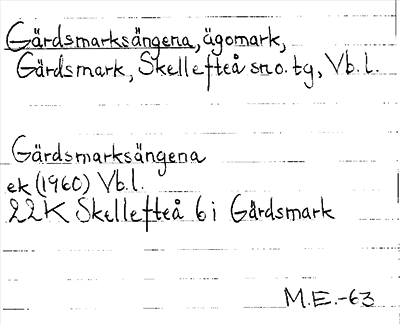 Gärdsmarksängena, ägomark,
Gärdsmark, Skellefteå sn o. tg, Vb. l.
Gärdsmarksängena
ek (1960) Vb. l.
22K Skellefteå 6 i Gärdsmark
M.E.-63